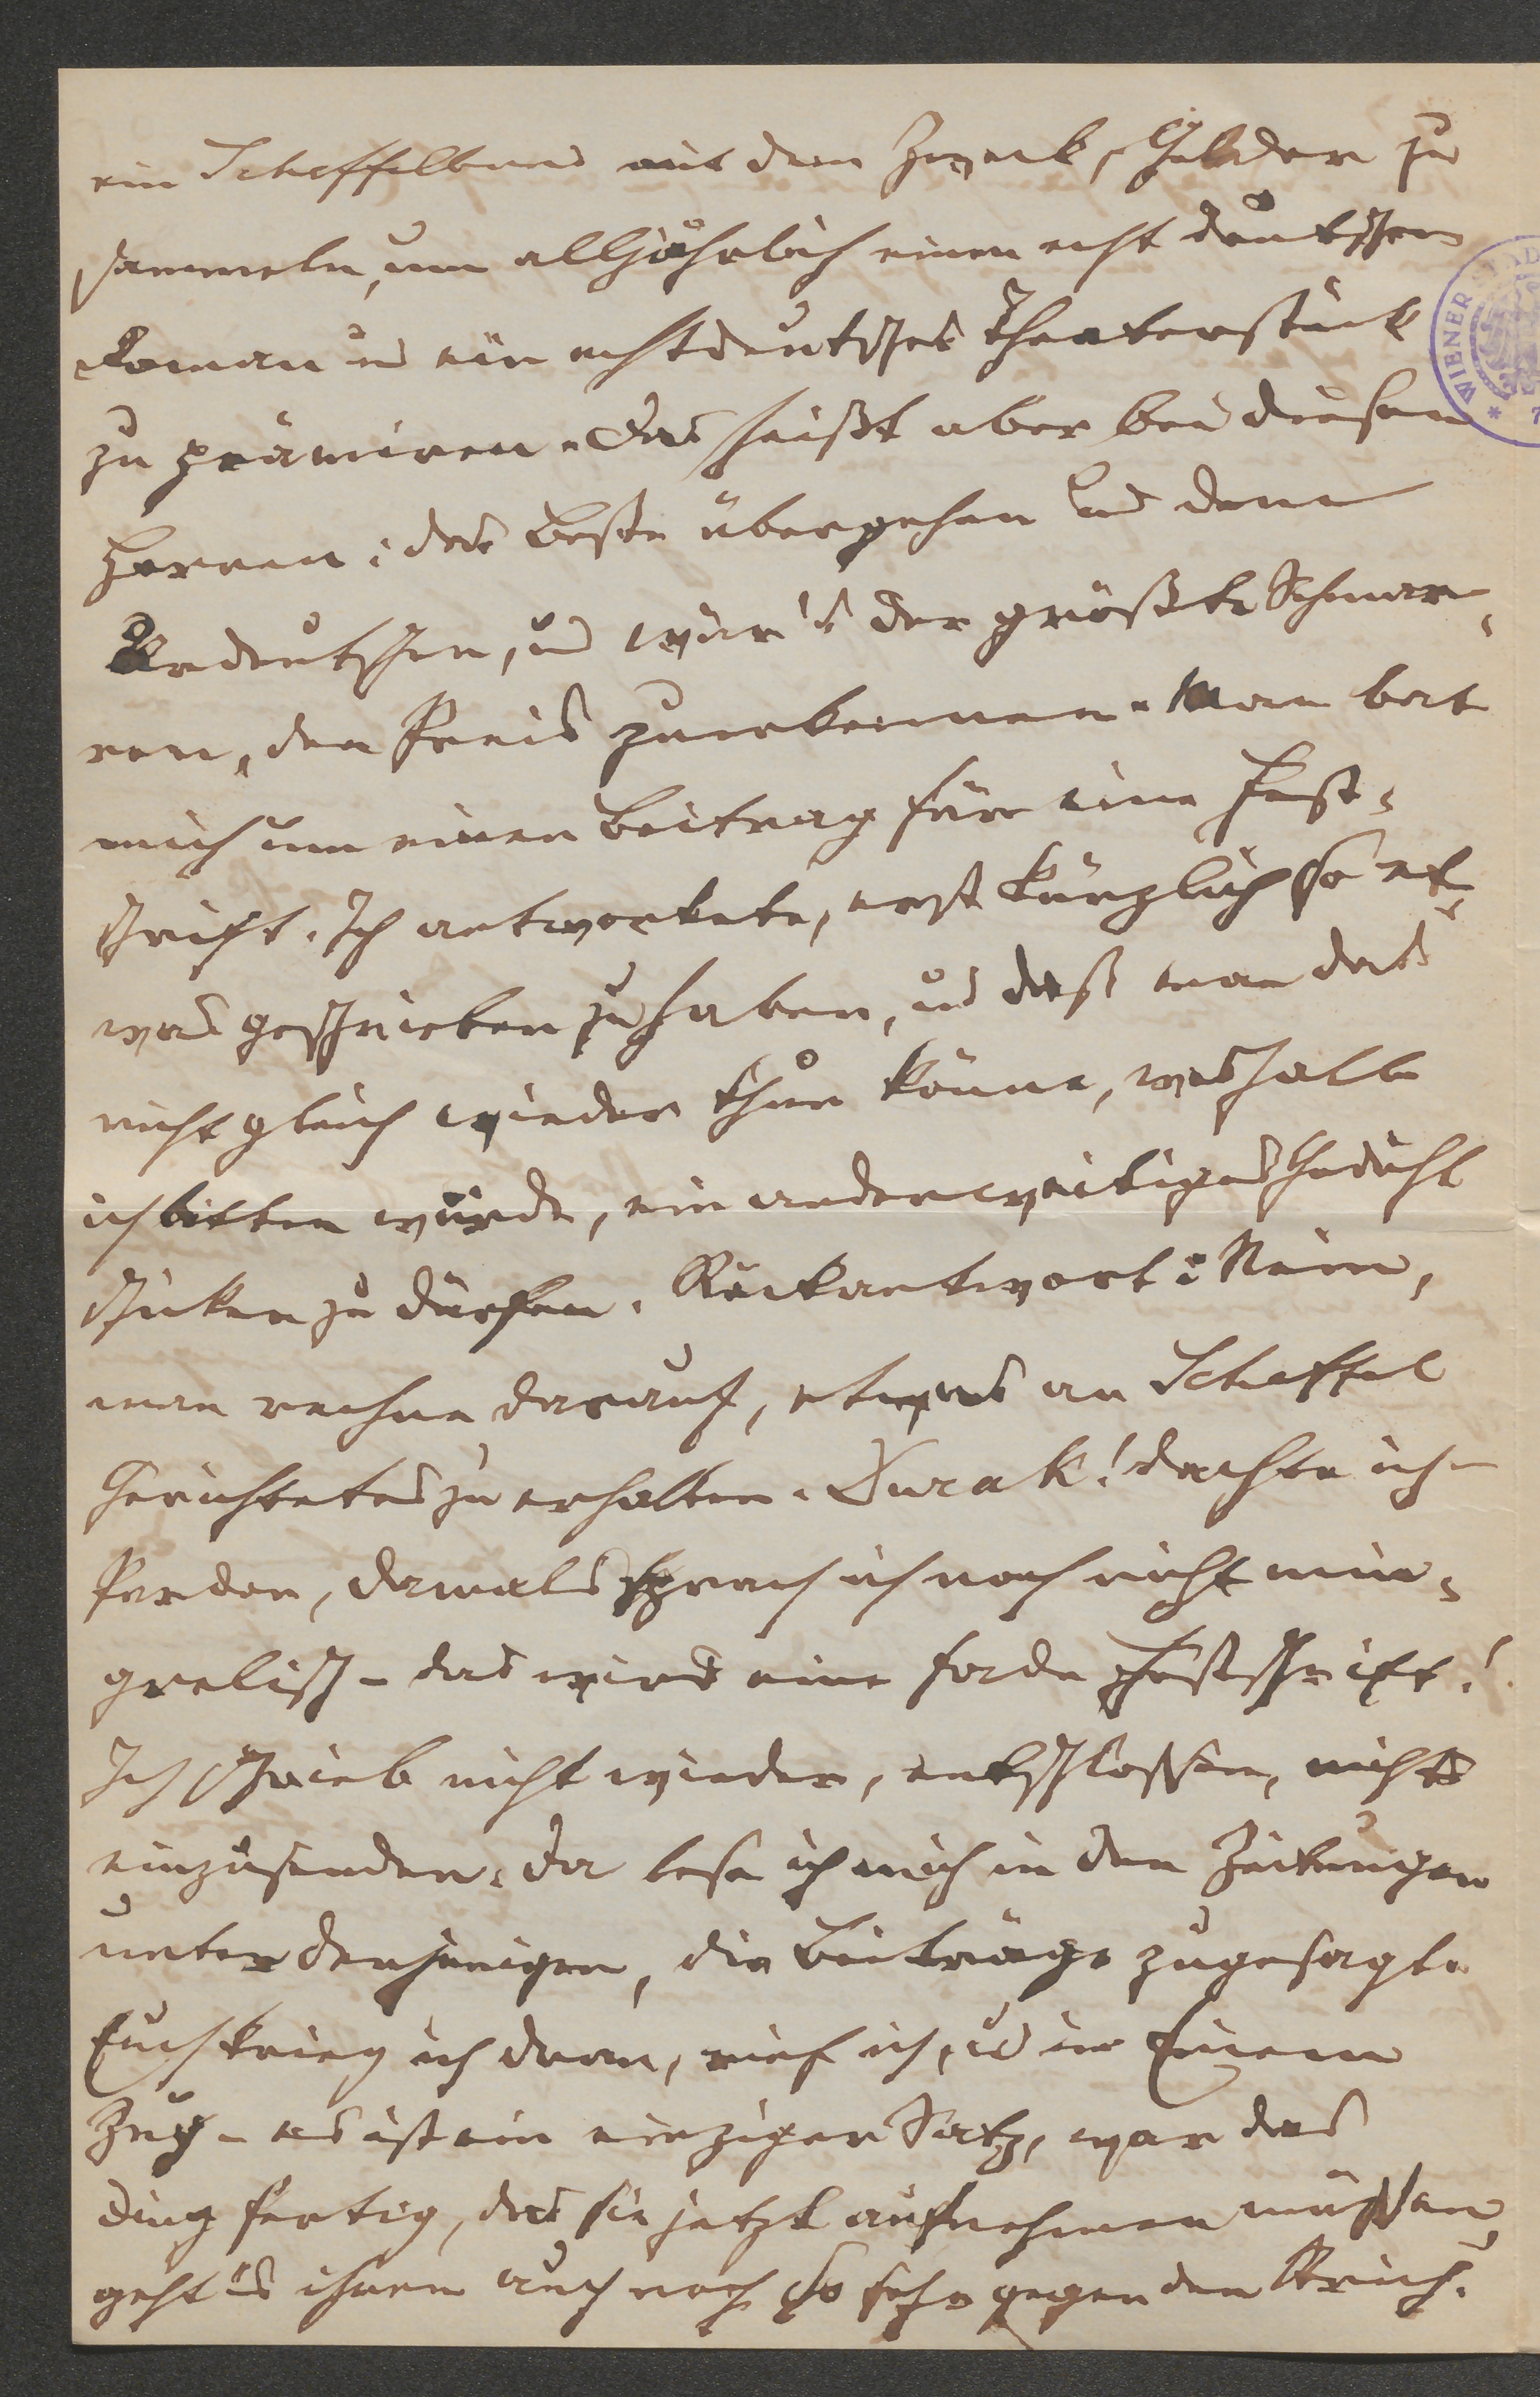 ein Scheffelbund mit dem Zweck, Gelder zu
sammeln, um alljährlich einen echt deutschen
Roman u ein echtdeutsches Theaterstück
zu prämiren. Das heißt aber bei diesen
Herren: das Beste übergehen und dem
Urdeutschen, u wär's der größte Schmar-
ren, den Preis zuerkennen. Man bat
mich um einen Beitrag für eine Fest-
schrift. Ich antwortete, erst kürzlich so et-
was geschrieben zu haben, u daß man das
nicht gleich wieder thun könne, weshalb
ich bitten würde, ein anderweitiges Gedicht
schicken zu dürfen. Rückantwort: Nein,
man rechne darauf, etwas an Scheffel
Gerichtetes zu erhalten. Durak! dachte ich –
Pardon, damals sprach ich noch nicht min-
grelisch – das wird eine fade Festschrift!
Ich schrieb nicht wieder, entschlossen, nichts
einzusenden. Da lese ich mich in den Zeitungen
unter denjenigen, die Beiträge zugesagt.
Euch krieg ich dran, rief ich, u in Einem
Zug – es ist ein einziger Satz, war das
Ding fertig, das sie jetzt aufnehmen müssen,
geht es ihnen auch noch so sehr gegen den Strich.
WIENER STAD
* 7